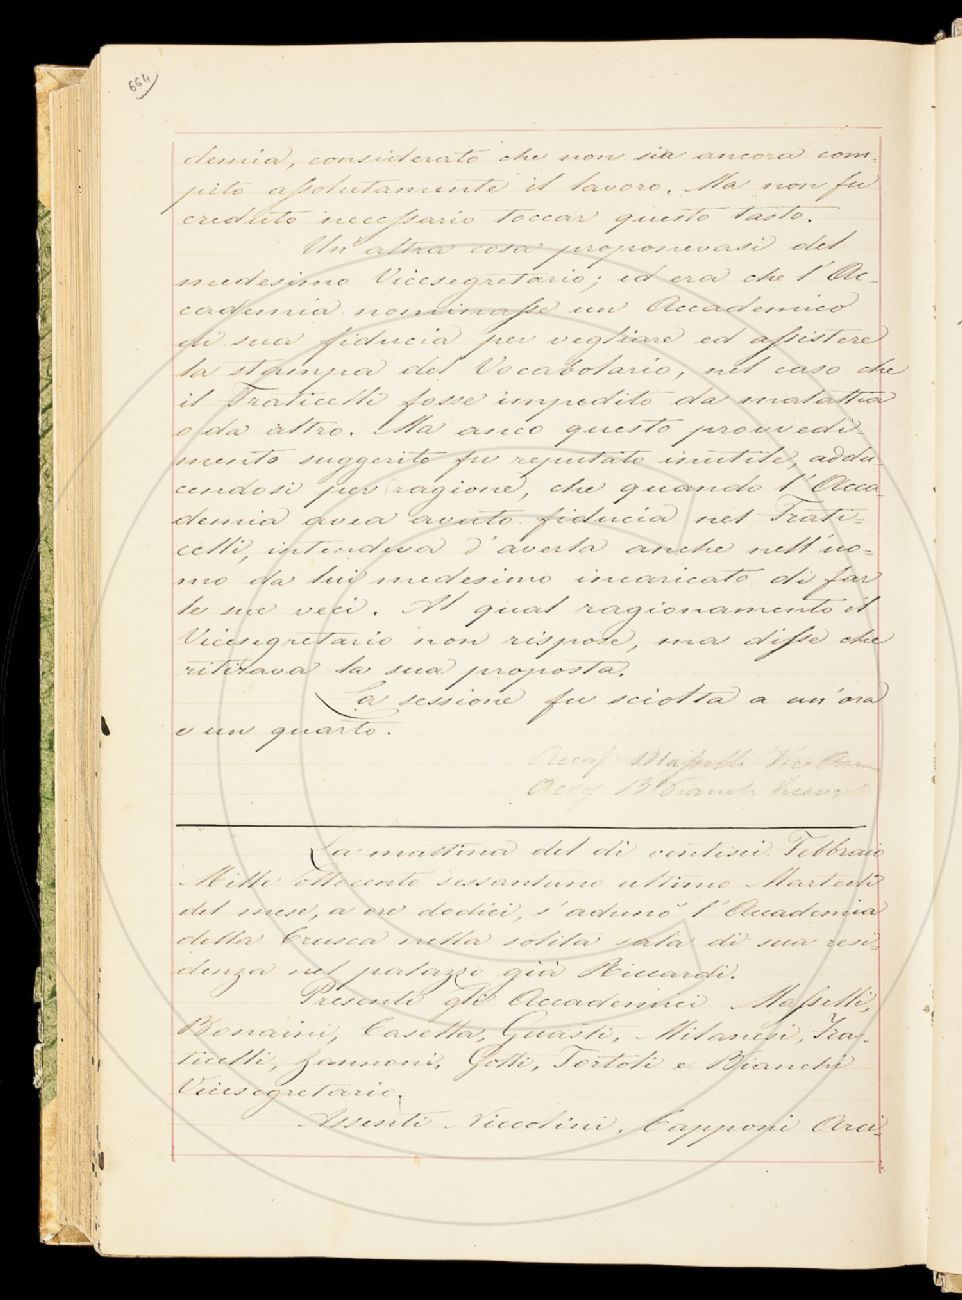 664
demia, considerato che non sia ancora com-
pito assolutamente il lavoro. Ma non fu
creduto necessario toccar questo tasto.
Un'altra cosa proponevasi del
medesimo Vicesegretario; ed era che l'Ac-
cademia nominasse un Accademico
di sua fiducia per vegliare ed assistere
la stampa del Vocabolario, nel caso che
il Fraticelli fosse impedito da malattia
o da altro. Ma anco questo provvedi-
mento suggerito fu reputato inutile, addu-
cendosi per ragione, che quando l'Acca-
demia avea avuto fiducia nel Frati-
celli, intendeva d'averla anche nell'uo-
mo da lui medesimo incaricato di far
le sue veci. Al qual ragionamento il
Vicesegretario non rispose, ma disse che
ritirava la sua proposta.
La sessione fu sciolta a un'ora
e un quarto.
La mattina del dì ventisei Febbraio
Mille ottocento sessantuno ultimo Martedì
del mese, a ore dodici, s'adunò l'Accademia
della Crusca nella solita sala di sua resi-
denza nel palazzo già Riccardi.
Presenti gli Accademici Masselli,
Bonaini, Casella, Guasti, Milanesi, Fra-
ticelli, Zannoni, Gotti, Tortoli e Bianchi
Vicesegretario.
Assenti Niccolini, Capponi Arci-